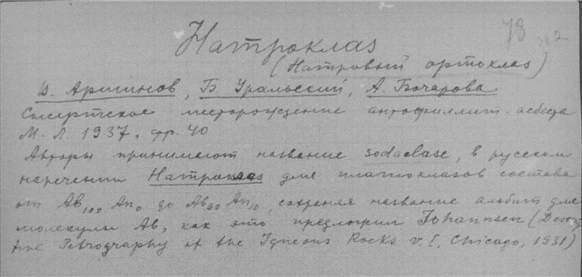 78
Натроклас
(Натровый ортоклас)
В. Аршинов, Б. Уральский, А. Бочарова
месторождение антофиллит-асбеста
М.-Л. 1937, стр. 40
Авторы принимают название sodaclase, в русском
наречении Натроклас для плагиоклазов состава
от Ab₁₀₀ An₀ до Ab₉₀ An₁₀, сохраняя название альбит для
молекулы Ab, как это предложил Johannsen (Descrip
tive Petrography of the Igneous Rocks v. I, Chicago, 1931)